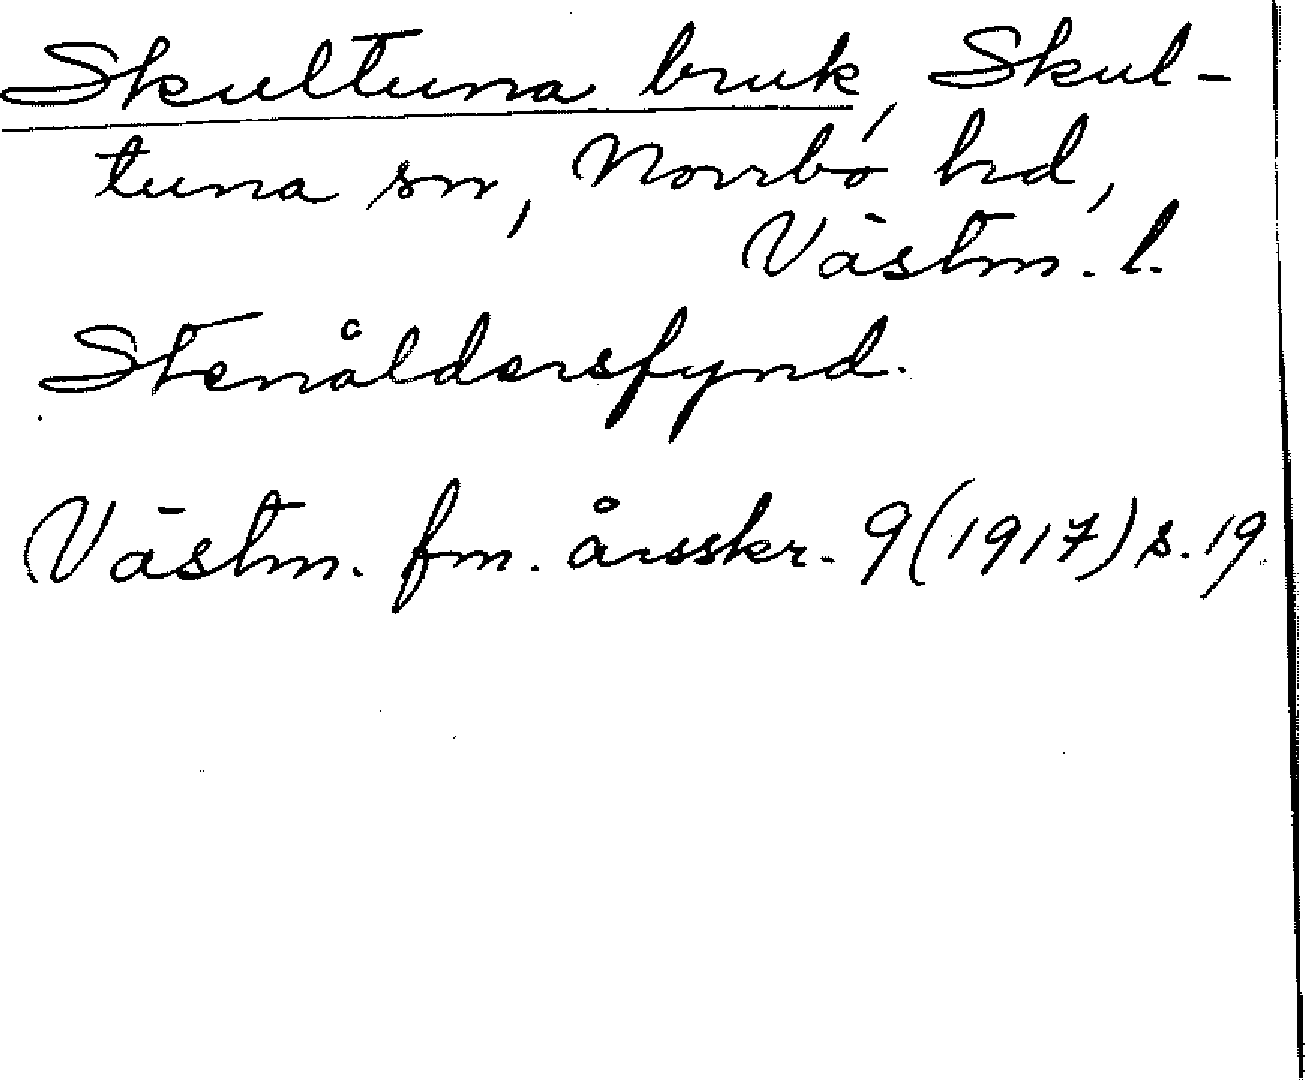 Skultuna bruk, Skul-
tuna sn, Norrbo hd,
Västm. l.
Stenåldersfynd.
Västm. fm. årsskr. 9 (1917) s. 19.